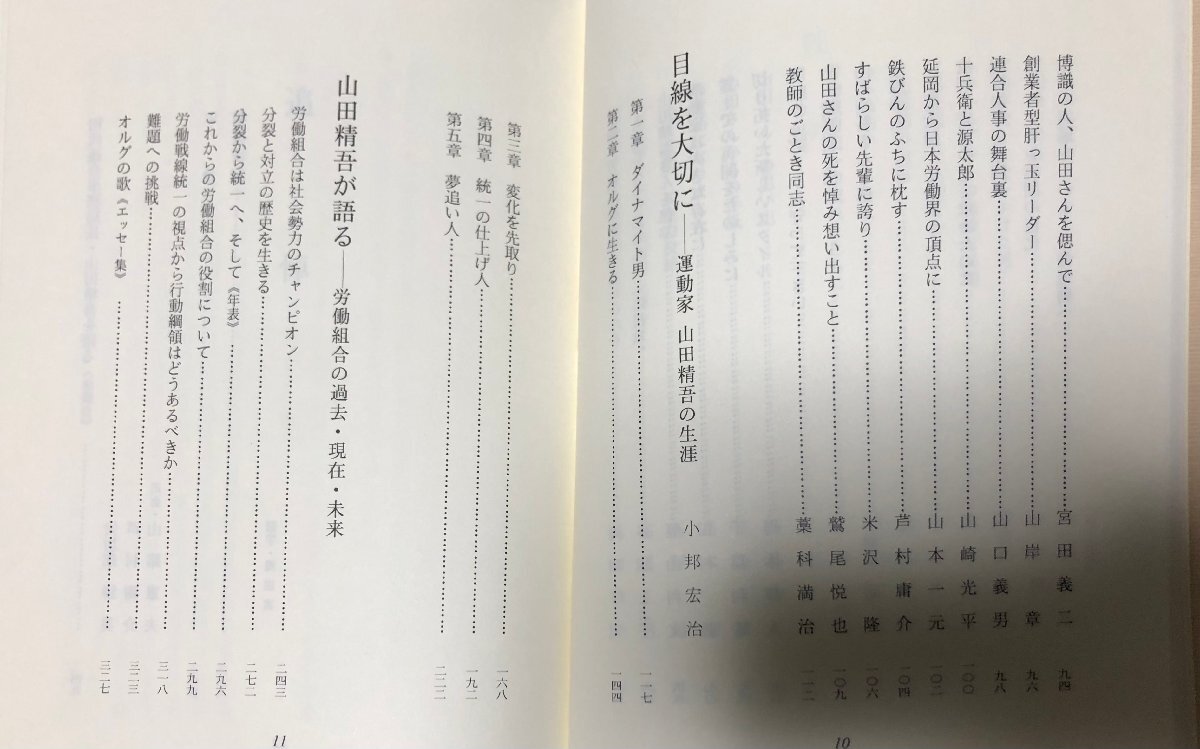 博識の人、山田さんを偲んで……………宮田義二 九四
創業者型肝っ玉リーダー……………山岸章 九六
連合人事の舞台裏……………山口義男 九八
十兵衛と源太郎……………山崎光平 一〇〇
延岡から日本労働界の頂点に……………山本一元 一〇二
鉄びんのふちに枕す……………芦村庸介 一〇四
すばらしい先輩に誇り……………米沢隆 一〇六
山田さんの死を悼み想い出すこと……………鷲尾悦也 一〇九
教師のごとき同志……………藁科満治 一一二
目線を大切に――運動家 山田精吾の生涯 小邦宏治
第一章 ダイナマイト男……………一一七
第二章 オルグに生きる……………一四四
10
第三章 変化を先取り……………一六八
第四章 統一の仕上げ人……………一九二
第五章 夢追い人……………二二二
山田精吾が語る――労働組合の過去・現在・未来
労働組合は社会勢力のチャンピオン……………二四三
分裂と対立の歴史を生きる……………二七二
分裂から統一へ、そして《年表》……………二九六
これからの労働組合の役割について……………二九九
労働戦線統一の視点から行動綱領はどうあるべきか……………三一八
難題への挑戦……………三二三
オルグの歌《エッセー集》……………三二七
11